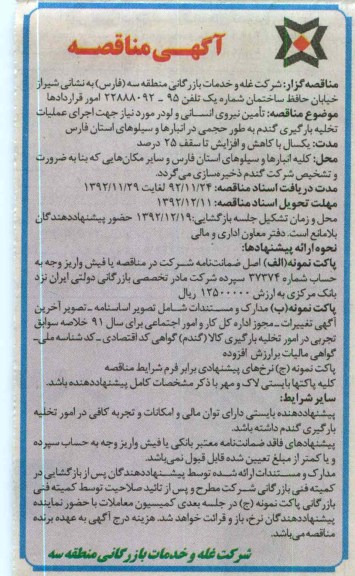 آگهی مناقصه
مناقصه‌گزار: شرکت غله و خدمات بازرگانی منطقه سه (فارس) به نشانی شیراز
خیابان حافظ ساختمان شماره یک تلفن ۹۵ - ۲۲۸۸۰۹۲ امور قراردادها
موضوع مناقصه: تأمین نیروی انسانی و لودر مورد نیاز جهت اجرای عملیات
تخلیه بارگیری گندم به طور حجمی در انبارها و سیلوهای استان فارس
مدت: یکسال با کاهش و افزایش تا سقف ۲۵ درصد
محل: کلیه انبارها و سیلوهای استان فارس و سایر مکان‌هایی که بنا به ضرورت
و تشخیص شرکت گندم ذخیره‌سازی می‌گردد.
مدت دریافت اسناد مناقصه: ۹۲/۱۱/۲۴ لغایت ۱۳۹۲/۱۱/۲۹
مهلت تحویل اسناد مناقصه: ۱۳۹۲/۱۲/۱۱
محل و زمان تشکیل جلسه بازگشایی: ۱۳۹۲/۱۲/۱۹ حضور پیشنهاددهندگان
بلامانع است. دفتر معاون اداری و مالی
نحوه ارائه پیشنهادها:
پاکت نمونه(الف) اصل ضمانت‌نامه شرکت در مناقصه یا فیش واریز وجه به
حساب شماره ۳۷۳۷۴ سپرده شرکت مادر تخصصی بازرگانی دولتی ایران نزد
بانک مرکزی به ارزش ۱۳۵۰۰۰۰۰۰ ریال
پاکت نمونه(ب) مدارک و مستندات شامل تصویر اساسنامه - تصویر آخرین
آگهی تغییرات - مجوز اداره کل کار و امور اجتماعی برای سال ۹۱ خلاصه سوابق
تجربی در امور تخلیه بارگیری کالا (گندم) گواهی کد اقتصادی - کد شناسه ملی -
گواهی مالیات بر ارزش افزوده
پاکت نمونه (ج) نرخ‌های پیشنهادی برابر فرم شرایط مناقصه
کلیه پاکتها بایستی لاک و مهر با ذکر مشخصات کامل پیشنهاددهنده باشد.
سایر شرایط:
پیشنهاددهنده بایستی دارای توان مالی و امکانات و تجربه کافی در امور تخلیه
بارگیری گندم داشته باشد.
پیشنهادهای فاقد ضمانت‌نامه معتبر بانکی یا فیش واریز وجه به حساب سپرده
و یا کمتر از مبلغ تعیین شده قابل قبول نمی‌باشد.
مدارک و مستندات ارائه شده توسط پیشنهاددهندگان پس از بازگشایی در
کمیته فنی بازرگانی شرکت مطرح و پس از تائید صلاحیت توسط کمیته فنی
بازرگانی پاکت نمونه (ج) در جلسه بعدی کمیسیون معاملات با حضور نماینده
پیشنهاددهندگان نرخ، باز و قرائت خواهد شد. هزینه درج آگهی به عهده برنده
مناقصه می‌باشد.
شرکت غله و خدمات بازرگانی منطقه سه